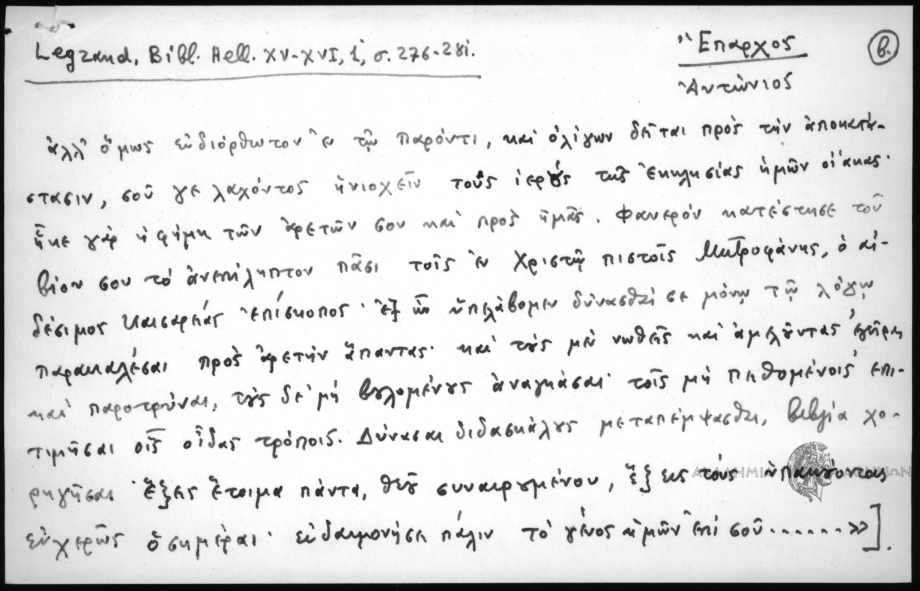 Legrand, Bibl. Hell. XV-XVI, 1, σ. 276-281.
Ἔπαρχος
β.
Ἀντώνιος
ἀλλ' ὅμως εὐδιόρθωτον ἐν τῷ παρόντι, καὶ ὀλίγων δεῖται πρὸς τὴν ἀποκατά-
στασιν, σοῦ γε λαχόντος ἡνιοχεῖν τοὺς ἱερούς τῆς ἐκκλησίας ἡμῶν οἴακας·
ἧκε γὰρ ἡ φήμη τῶν ἀρετῶν σου καὶ πρὸς ἡμᾶς. Φανερόν κατέστησε τοῦ
βίου σου τὸ ἀνεπίληπτον πᾶσι τοῖς ἐν Χριστῷ πιστοῖς Μητροφάνης, ὁ αἰ-
δέσιμος Καισαρείας ἐπίσκοπος· ἐξ ὧν ὑπελάβομεν δύνασθαί σε μόνῳ τῷ λόγῳ
παρακαλέσαι πρὸς ἀρετὴν ἅπαντας· καὶ τοὺς μὲν νωθεῖς καὶ ἀμελοῦντας ἐγεῖραι
καὶ παροτρῦναι, τοὺς δὲ μὴ βουλομένους ἀναγκάσαι τοῖς μὴ πειθομένοις ἐπι-
τιμῆσαι οἷς οἶδας τρόποις. Δύνασαι διδασκάλους μεταπέμψασθαι, βιβλία χο-
ρηγῆσαι· ἕξεις ἕτοιμα πάντα, θεοῦ συναιρουμένου, ἕξεις τοὺς ὑπακούοντας
εὐχερῶς ὁσημέραι· εὐδαιμονήσει πάλιν τὸ γένος ἡμῶν ἐπὶ σοῦ......»].